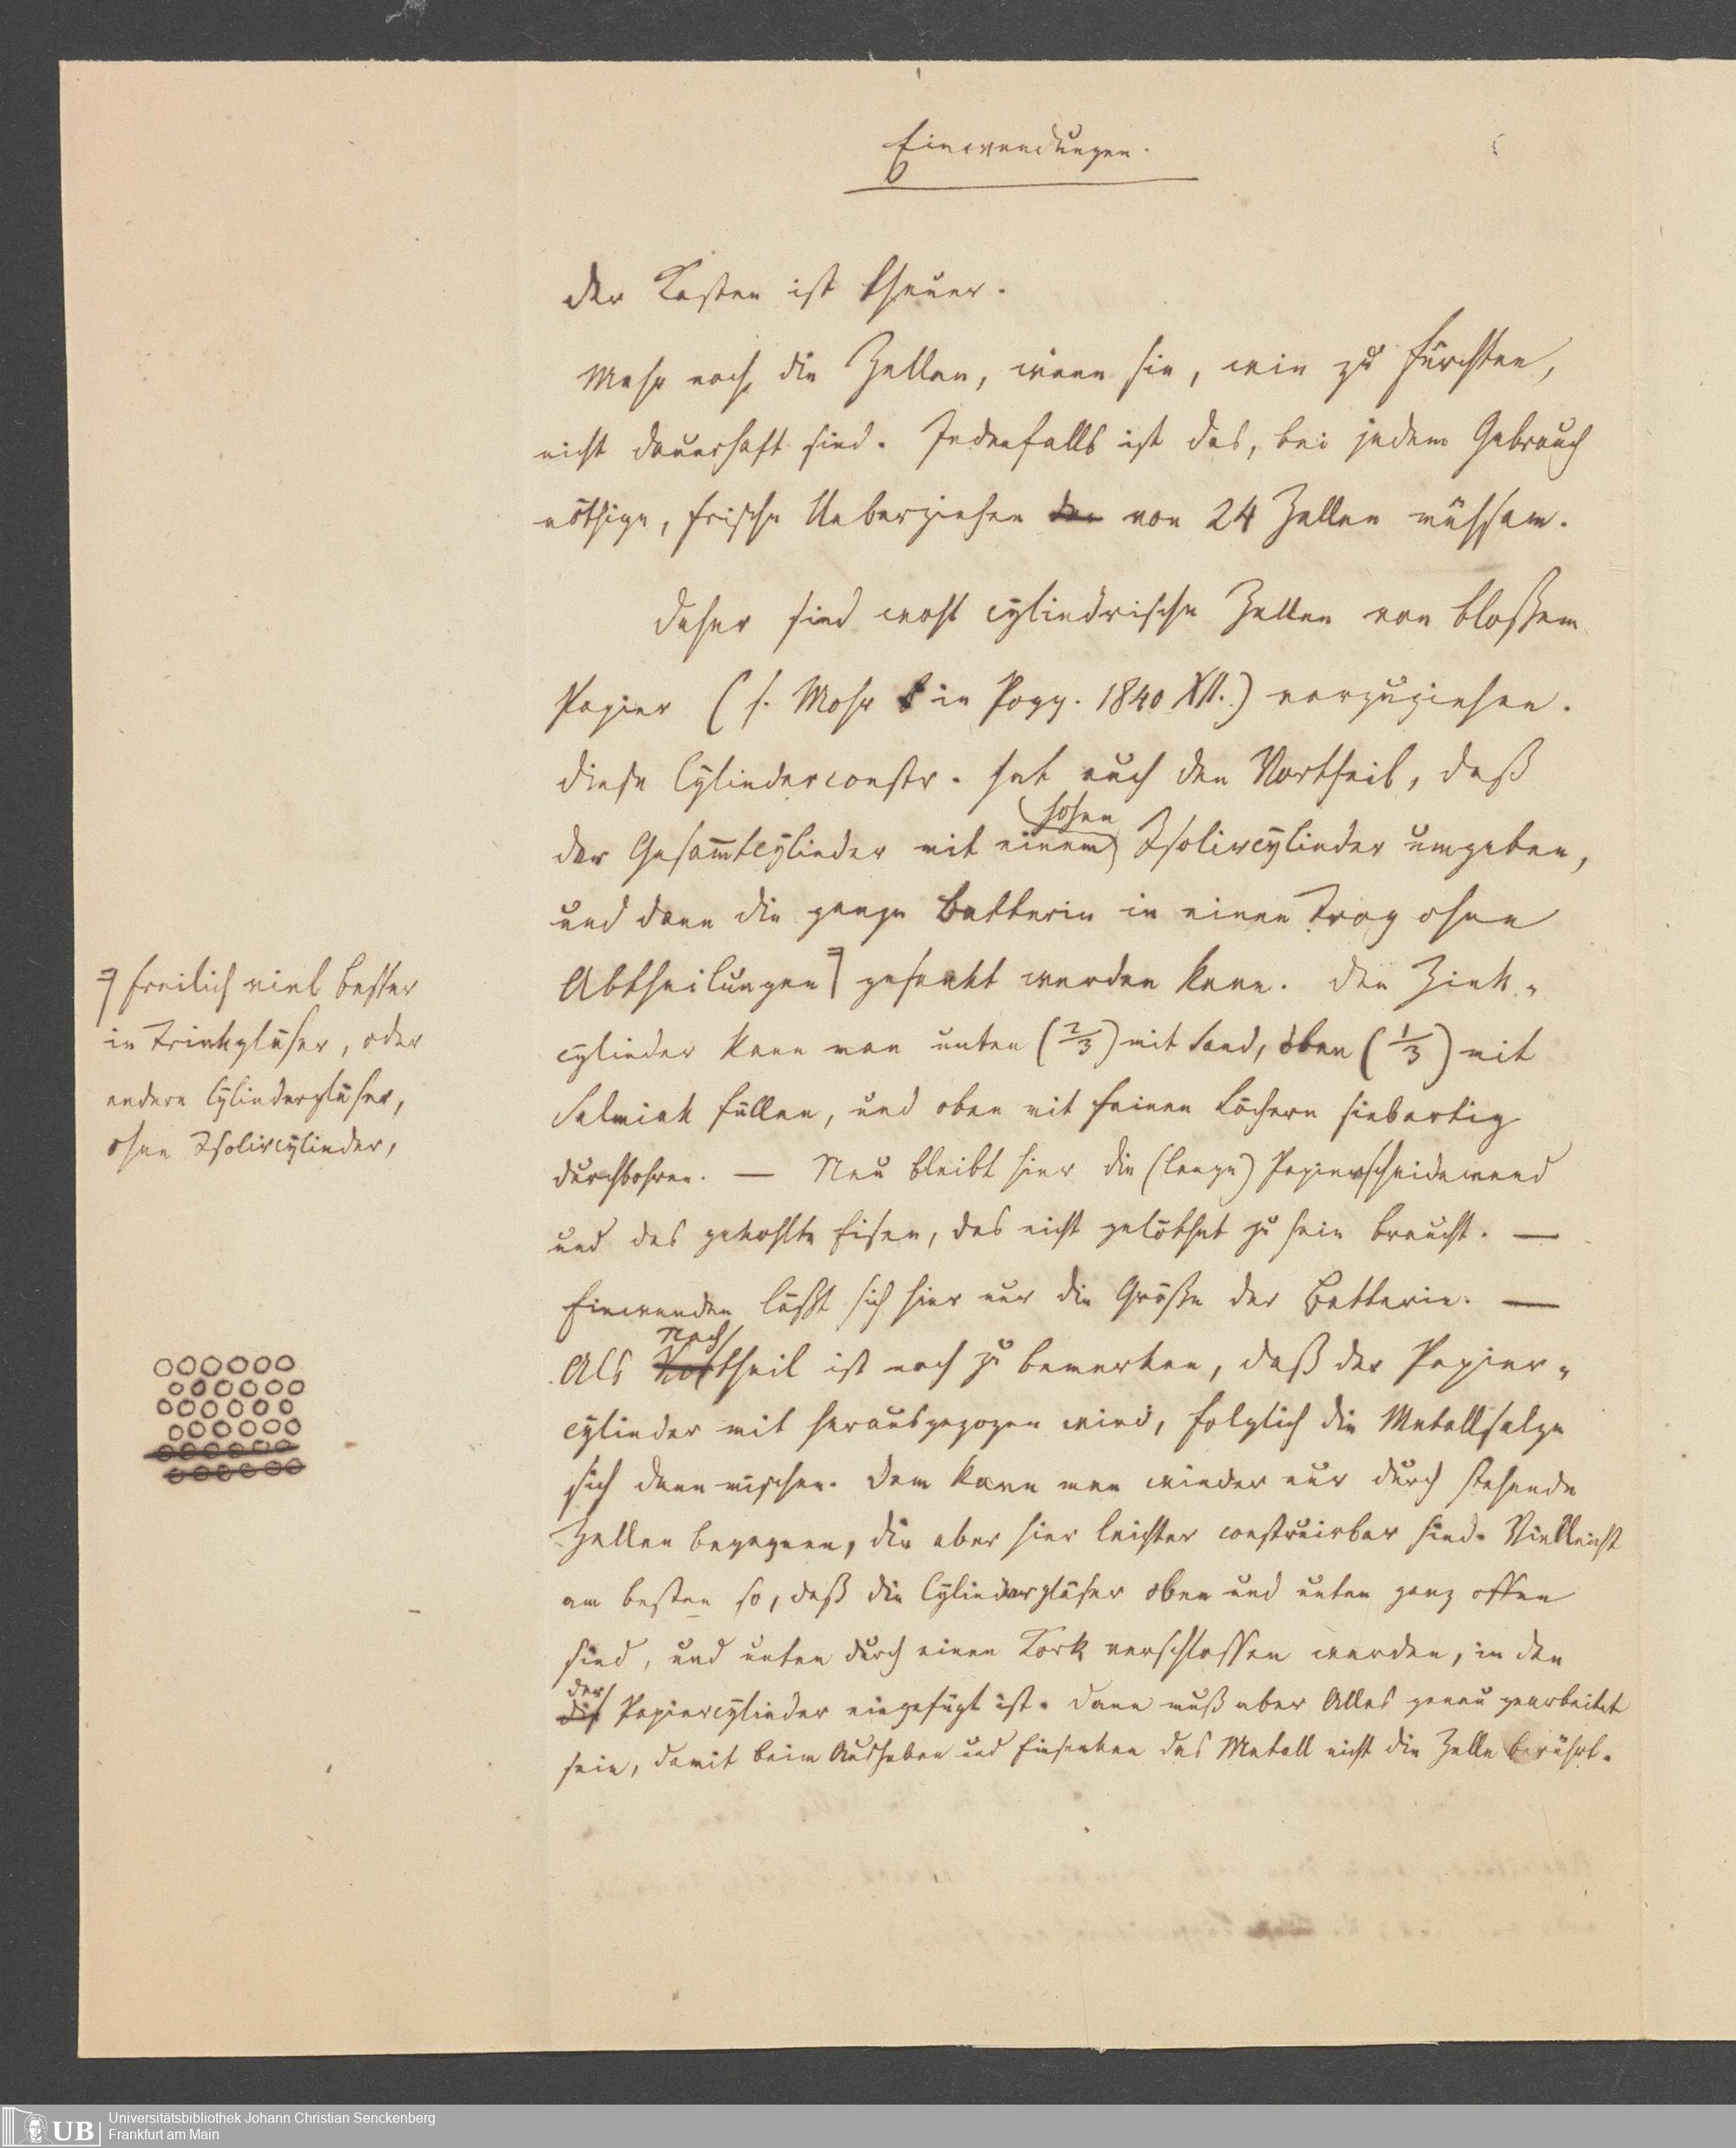 Einwendungen.
Der Kasten ist theuer.
Mehr noch die Zellen, wenn sie, wie zu fürchten,
nicht dauerhaft sind. Jedenfalls ist das, bei jedem Gebrauch
nöthige, frische Ueberziehen der von 24 Zellen mühsam.
Daher sind wohl cylindrische Zellen von bloßem
Papier (s. Mohr in Pogg. 1840 XII.) vorzuziehen.
Diese Cylinderconstr. hat auch den Vortheil, daß
hohen
der Gesam̅tcylinder mit einem Isolircylinder umgeben,
und dann die ganze Batterie in einen Trog ohne
Abtheilungen gesenkt werden kann. Den Zink-
cylinder kann man unten (2/3) mit Sand, oben (1/3) mit
Salmiak füllen, und oben mit feinen Löchern siebartig
durchbohren. — Neu bleibt hier die (lange) Papierscheidewand
und das gekohlte Eisen, das nicht gelöthet zu sein braucht. —
Einwenden läßt sich hier nur die Größe der Batterie. —
Nach
Als Vortheil ist noch zu bemerken, daß der Papier-
cylinder mit herausgezogen wird, folglich die Metallsalze
sich dann mischen. Dem kann man wieder nur durch stehende
Zellen begegnen, die aber hier leichter construirbar sind. Vielleicht
am besten so, daß die Cylindergläser oben und unten ganz offen
sind, und unten durch einen Kork verschlossen werden, in den
der
die Papiercylinder eingefügt ist. Dann muß aber Alles genau gearbeitet
sein, damit beim Ausheben und Einsenken das Metall nicht die Zelle berührt.
freilich viel besser
in Trinkgläser, oder
andere Cylindergläser,
ohne Isolircylinder,
UB
Universitätsbibliothek Johann Christian Senckenberg
Frankfurt am Main